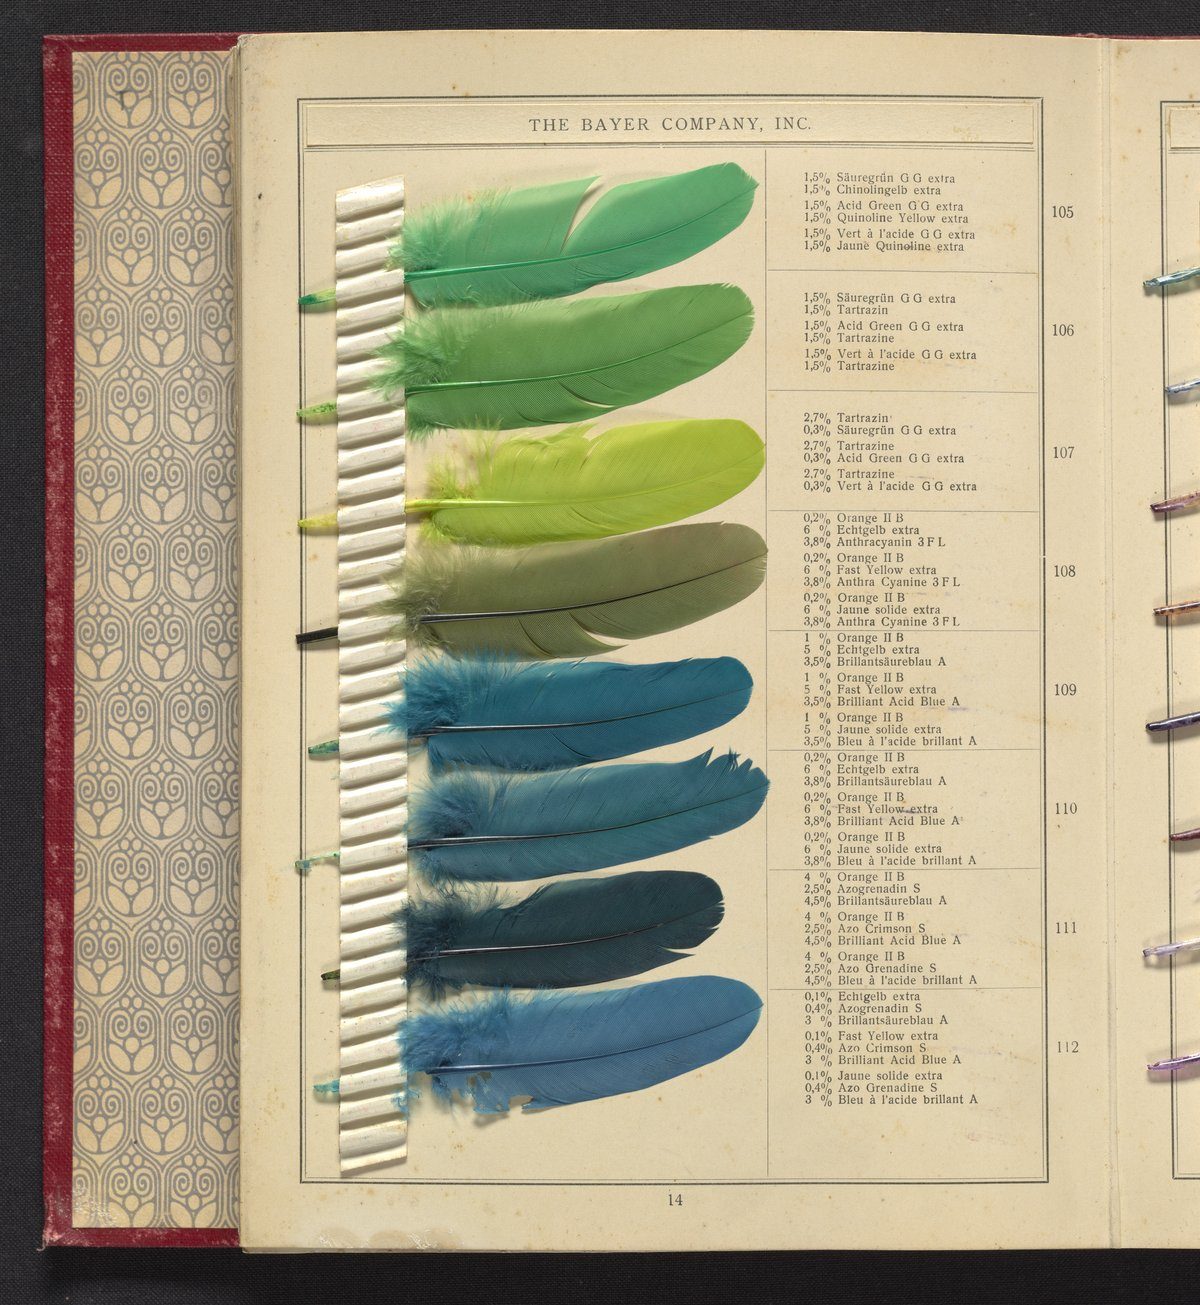 THE BAYER COMPANY, INC.
1,5% Säuregrün G G extra
1,5% Chinolingelb extra
1,5% Acid Green G G extra
1,5% Quinoline Yellow extra
1,5% Vert à l'acide G G extra
1,5% Jaune Quinoline extra
105
1,5% Säuregrün G G extra
1,5% Tartrazin
1,5% Acid Green G G extra
1,5% Tartrazine
1,5% Vert à l'acide G G extra
1,5% Tartrazine
106
2,7% Tartrazin
0,3% Säuregrün G G extra
2,7% Tartrazine
0,3% Acid Green G G extra
2,7% Tartrazine
0,3% Vert à l'acide G G extra
107
0,2% Orange II B
6 % Echtgelb extra
3,8% Anthracyanin 3 F L
0,2% Orange II B
6 % Fast Yellow extra
3,8% Anthra Cyanine 3 F L
0,2% Orange II B
6 % Jaune solide extra
3,8% Anthra Cyanine 3 F L
108
1 % Orange II B
5 % Echtgelb extra
3,5% Brillantsäureblau A
1 % Orange II B
5 % Fast Yellow extra
3,5% Brilliant Acid Blue A
1 % Orange II B
5 % Jaune solide extra
3,5% Bleu à l'acide brillant A
109
0,2% Orange II B
6 % Echtgelb extra
3,8% Brillantsäureblau A
0,2% Orange II B
6 % Fast Yellow extra
3,8% Brilliant Acid Blue A
0,2% Orange II B
6 % Jaune solide extra
3,8% Bleu à l'acide brillant A
110
4 % Orange II B
2,5% Azogrenadin S
4,5% Brillantsäureblau A
4 % Orange II B
2,5% Azo Crimson S
4,5% Brilliant Acid Blue A
4 % Orange II B
2,5% Azo Grenadine S
4,5% Bleu à l'acide brillant A
111
0,1% Echtgelb extra
0,4% Azogrenadin S
3 % Brillantsäureblau A
0,1% Fast Yellow extra
0,4% Azo Crimson S
3 % Brilliant Acid Blue A
0,1% Jaune solide extra
0,4% Azo Grenadine S
3 % Bleu à l'acide brillant A
112
14